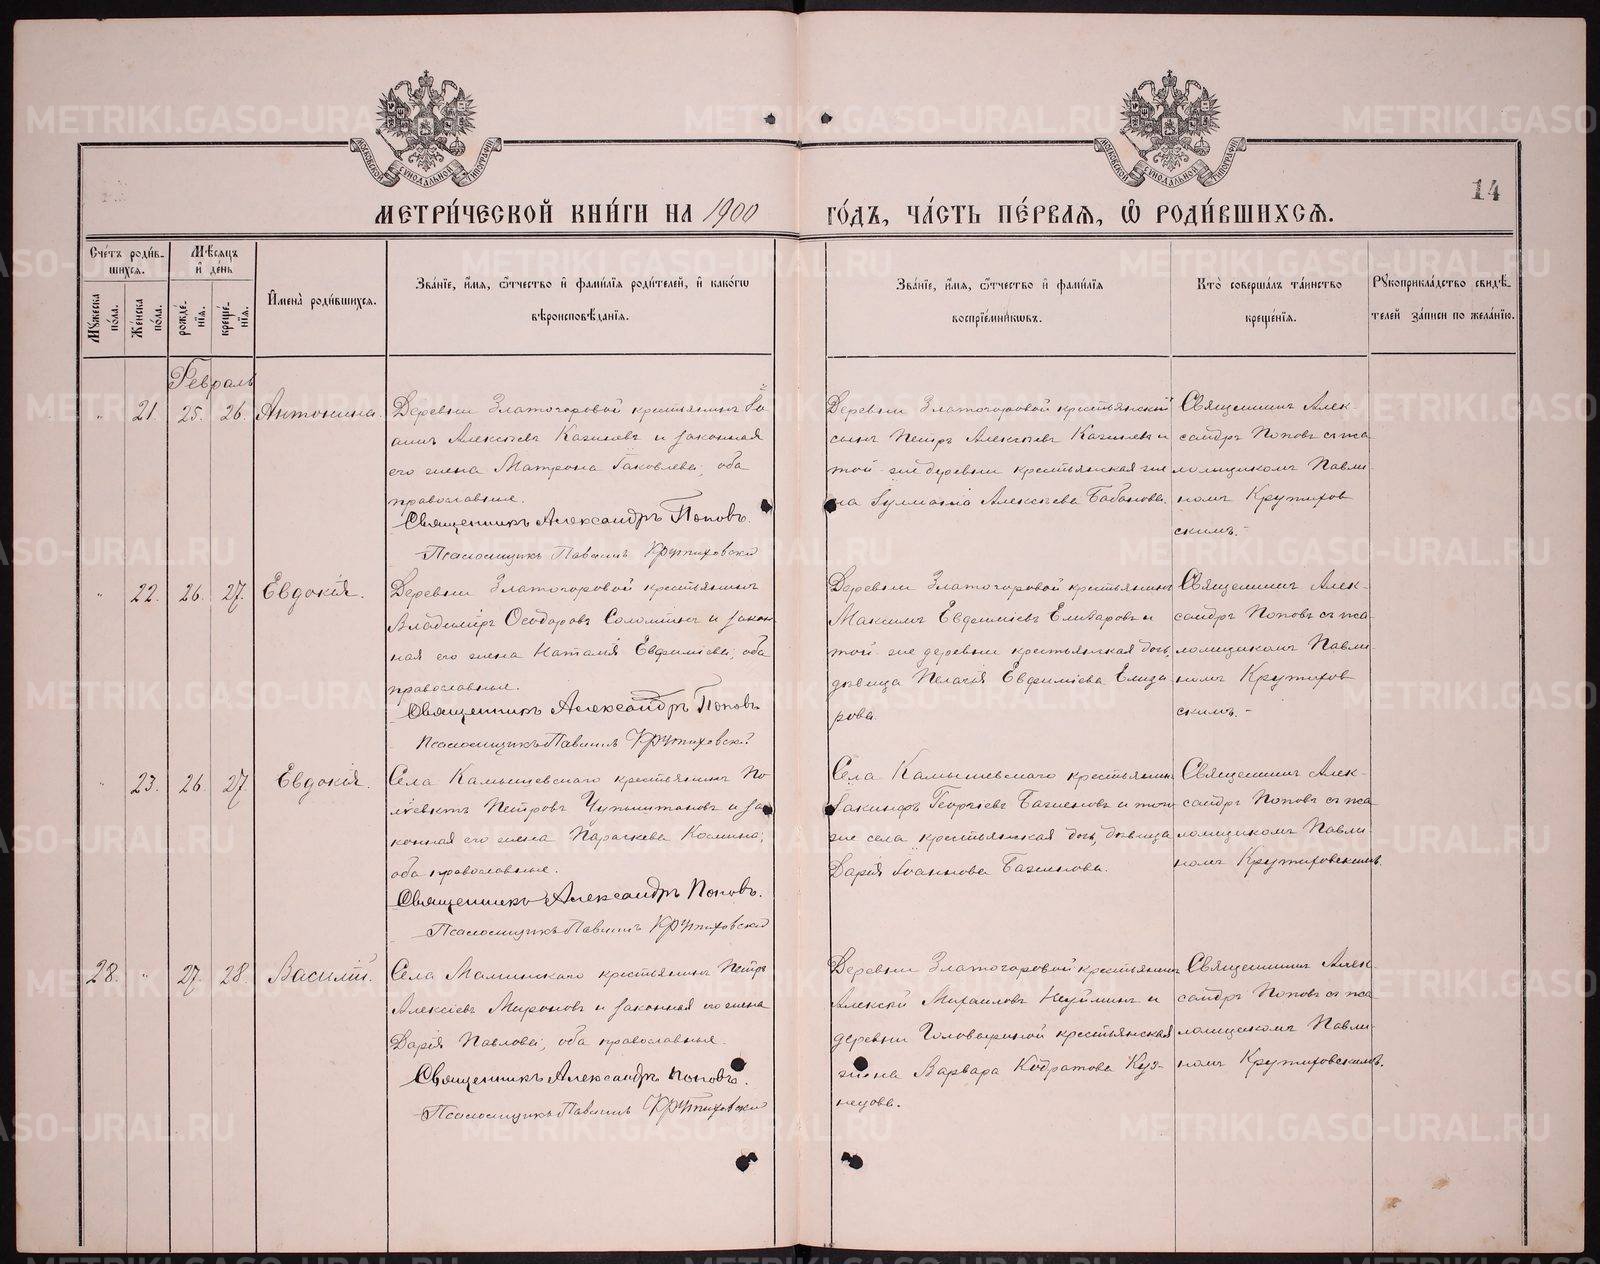 МОСКОВСКОЙ СѴНОДАЛЬНОЙ ТИПОГРАФІИ
МОСКОВСКОЙ СѴНОДАЛЬНОЙ ТИПОГРАФІИ
14
МЕТРИ́ЧЕСКОЙ КНИ́ГИ НА 1900
ГО́ДЪ, ЧА́СТЬ ПЕ́РВАѦ, Ѡ҆ РОДИ́ВШИХСѦ.
Сче́тъ роди́в-
шихсѧ.
Мѣ́сѧцъ
и҆ де́нь
Мꙋ́жеска
по́ла.
Же́нска
по́ла.
рожде́-
нїѧ.
креще́-
нїѧ.
И҆мена̀ роди́вшихсѧ.
Зва́нїе, и҆́мѧ, ѻ҆́тчество и҆ фами́лїѧ роди́телей, и҆ како́гѡ
вѣроисповѣ́данїѧ.
Зва́нїе, и҆́мѧ, ѻ҆́тчество и҆ фами́лїѧ
воспрїе́мникѡвъ.
Кто̀ соверша́лъ та́инство
креще́нїѧ.
Рꙋкоприкла́дство свидѣ́-
телей за́писи по жела́нїю.
Февраль
" 21. 25. 26. Антонина.
Деревни Златогоровой крестьянинъ Іо-
аннъ Алексѣевъ и законная
его жена Матрона Іаковлева; оба
православные.
Священникъ Александръ Поповъ.
Псаломщикъ Павлинъ Крутиховскій
Деревни Златогоровой крестьянскій
сынъ Петръ Алексѣевъ и
той-же деревни крестьянская же-
на Іуліанія Алексѣева Бабанова.
Священникъ Алек-
сандръ Поповъ съ пса-
ломщикомъ Павли-
номъ Крутихов-
скимъ.-
" 22. 26. 27. Евдокія.
Деревни Златогоровой крестьянинъ
Владиміръ Ѳеодоровъ Соломеинъ и закон-
ная его жена Наталія Евфиміева; оба
православные.
Священникъ Александръ Поповъ.
Псаломщикъ Павлинъ Крутиховскій
Деревни Златогоровой крестьянинъ
Максимъ Евфиміевъ Елизаровъ и
той-же деревни крестьянская дочь,
дѣвица Пелагія Евфиміева Елиза-
рова.
Священникъ Алек-
сандръ Поповъ съ пса-
ломщикомъ Павли-
номъ Крутихов-
скимъ.-
" 23. 26. 27. Евдокія.
Села Камышевскаго крестьянинъ По-
ліевктъ Петровъ и за-
конная его жена Параскева Космина;
оба православные.
Священникъ Александръ Поповъ.
Псаломщикъ Павлинъ Крутиховскій
Села Камышевскаго крестьянинъ
Іакинфъ Георгіевъ Баженовъ и того-
же села крестьянская дочь, дѣвица
Дарія Іоаннова Баженова.
Священникъ Алек-
сандръ Поповъ съ пса-
ломщикомъ Павли-
номъ Крутиховскимъ.
28. " 27. 28. Василій.
Села Маминскаго крестьянинъ Петръ
Алексіевъ Мироновъ и законная его жена
Дарія Павлова; оба православные.
Священникъ Александръ Поповъ.
Псаломщикъ Павлинъ Крутиховскій
Деревни Златогоровой крестьянинъ
Алексій Михаиловъ Неуйминъ и
деревни Головыриной крестьянская
жена Варвара Кодратова Куз-
нецова.
Священникъ Алек-
сандръ Поповъ съ пса-
ломщикомъ Павли-
номъ Крутиховскимъ.
METRIKI.GASO-URAL.RU